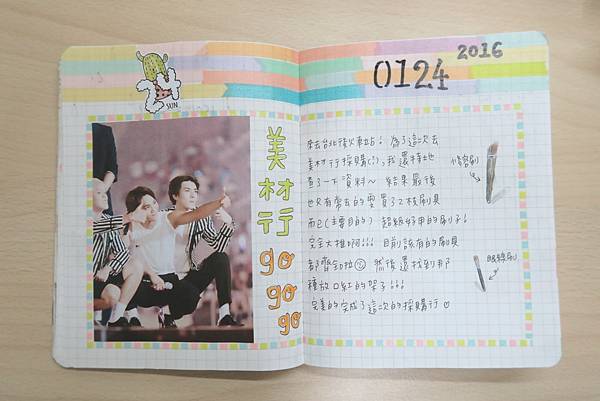 24
SUN
美材行
go
go
go
2016
0124
來去台北後火車站! 為了這次去
美材行採購(?), 我還特地
查了一下資料~ 結果最後
也只有常去的零買了2枝刷具
而已(主要目的) 超級好用的刷子!
完全大推啊!!! 目前該有的刷具
都齊全啦 然後還找到那
種放口紅的架子!!!
完美的完成了這次的採購行
修容刷
眼線刷